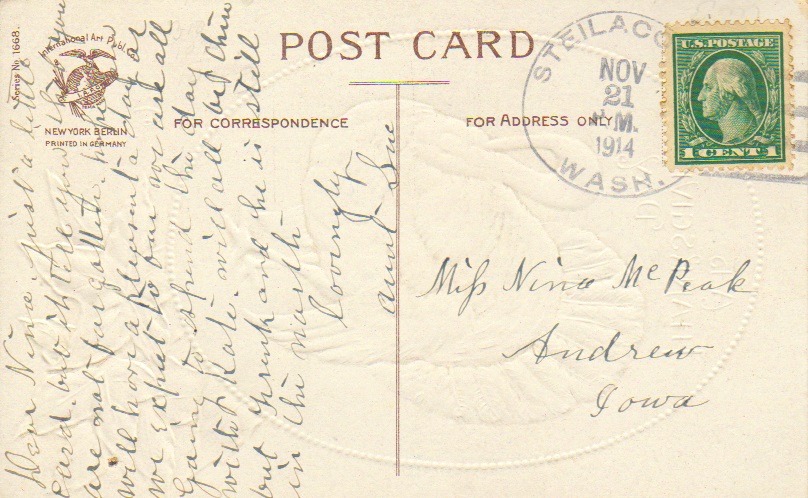 Series No 1668.
International Art Publ. Co
NEW YORK BERLIN
PRINTED IN GERMANY
POST CARD
FOR CORRESPONDENCE
FOR ADDRESS ONLY
STEILACO
NOV
21
M.
1914
WASH.
U.S. POSTAGE
1 CENT 1
Dear Nina. Just a little
card. but it tell you that you
are not forgotten. hope
will have a plesent day as
we expect to our we are all
Going to spend the day
with Kate. will all be thire
but Frank and he is still
in the north
Lovingly
Aunt Sue
Miss Nina McPeak
Andrew
Iowa